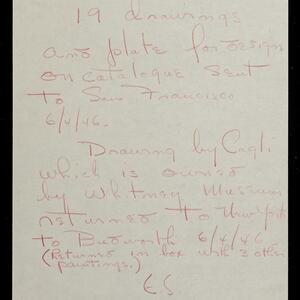 19 drawings
and plate for design
on catalogue sent
to San Francisco
6/4/46.
Drawing by Cagli
which is owned
by Whitney Museum
returned to New York
to Budworth 6/4/46
(Returned in box with 3 other
paintings.)
E.S.